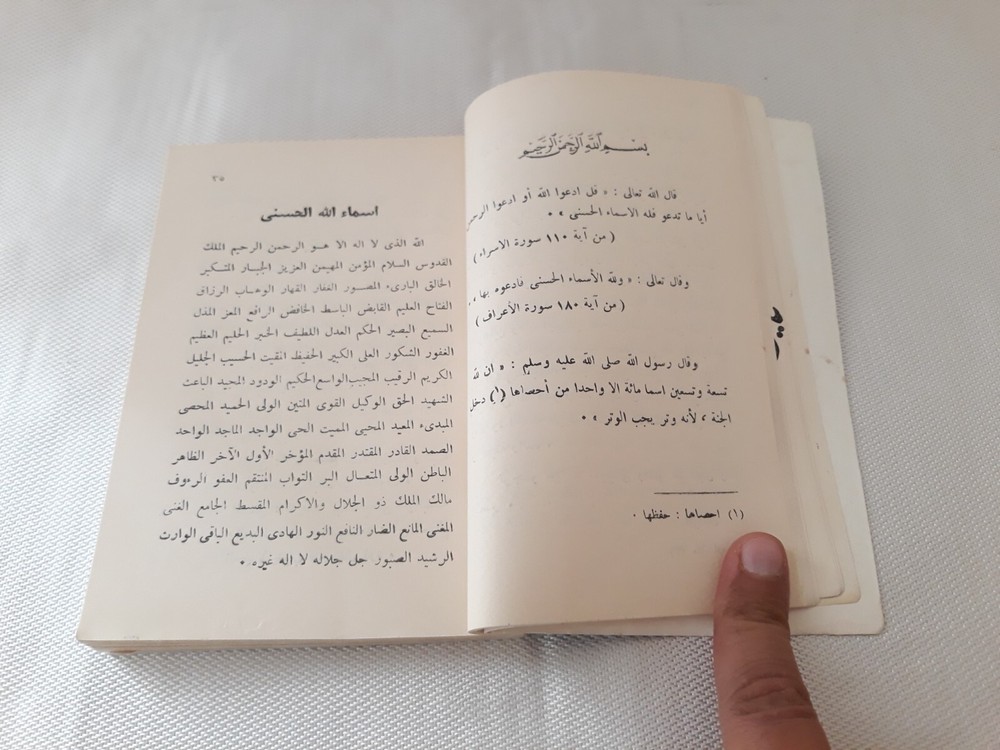 بسم الله الرحمن الرحيم
قال الله تعالى : « قل ادعوا الله أو ادعوا الرحمن
أيا ما تدعو فله الاسماء الحسنى » ٠
( من آية ١١٠ سورة الاسراء )
وقال تعالى : « ولله الأسماء الحسنى فادعوه بها ،
( من آية ١٨٠ سورة الأعراف )
وقال رسول الله صلى الله عليه وسلم : « ان لله
تسعة وتسعين اسما مائة الا واحدا من أحصاها (١) دخل
الجنة ، لأنه وتر يحب الوتر » ٠
(١) احصاها : حفظها ٠
٣٥
اسماء الله الحسنى
الله الذى لا اله الا هو الرحمن الرحيم الملك
القدوس السلام المؤمن المهيمن العزيز الجبار المتكبر
الخالق البارىء المصور الغفار القهار الوهاب الرزاق
الفتاح العليم القابض الباسط الخافض الرافع المعز المذل
السميع البصير الحكم العدل اللطيف الخبر الحليم العظيم
الغفور الشكور العلى الكبير الحفيظ المقيت الحسيب الجليل
الكريم الرقيب المجيب الواسع الحكيم الودود المجيد الباعث
الشهيد الحق الوكيل القوى المتين الولى الحميد المحصى
المبدىء المعيد المحيى المميت الحى الواجد الماجد الواحد
الصمد القادر المقتدر المقدم المؤخر الأول الآخر الظاهر
الباطن الولى المتعال البر التواب المنتقم العفو الرءوف
مالك الملك ذو الجلال والاكرام المقسط الجامع الغنى
المغنى المانع الضار النافع النور الهادى البديع الباقى الوارث
الرشيد الصبور جل جلاله لا اله غيره ٠